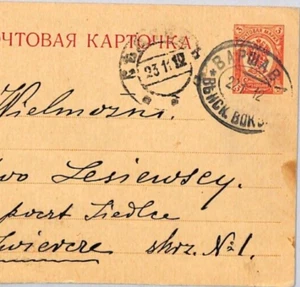 ОЧТОВАЯ КАРТОЧКА
23 1 12
ВАРШАВА
ВОКЗ.
Wielmożni
wo Lesiewscy
poczt Siedlce
Zwierce skrz. №1.